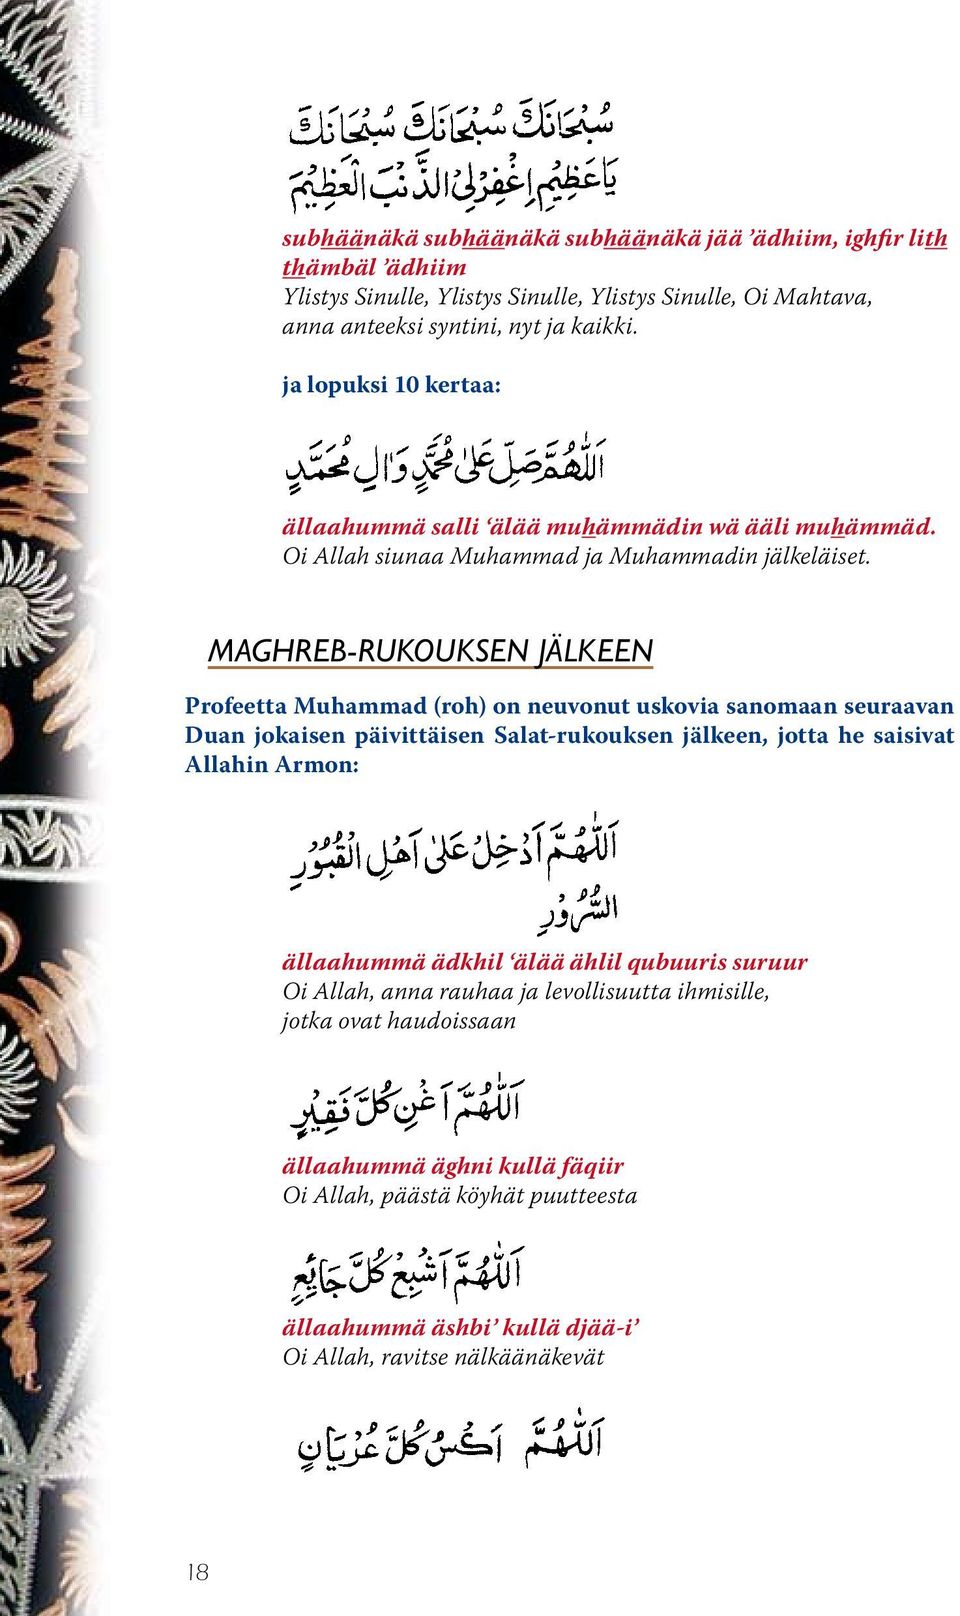 سُبْحَانَكَ سُبْحَانَكَ سُبْحَانَكَ
يَاعَظِيْمُ اِغْفِرْلِيْ الذَّنْبَ الْعَظِيْمَ
subhäänäkä subhäänäkä subhäänäkä jää ’ädhiim, ighfir lith
thämbäl ’ädhiim
Ylistys Sinulle, Ylistys Sinulle, Ylistys Sinulle, Oi Mahtava,
anna anteeksi syntini, nyt ja kaikki.
ja lopuksi 10 kertaa:
اَللّٰهُمَّ صَلِّ عَلٰى مُحَمَّدٍ وَاٰلِ مُحَمَّدٍ
ällaahummä salli ‘älää muhämmädin wä ääli muhämmäd.
Oi Allah siunaa Muhammad ja Muhammadin jälkeläiset.
MAGHREB-RUKOUKSEN JÄLKEEN
Profeetta Muhammad (roh) on neuvonut uskovia sanomaan seuraavan
Duan jokaisen päivittäisen Salat-rukouksen jälkeen, jotta he saisivat
Allahin Armon:
اَللّٰهُمَّ اَدْخِلْ عَلٰى اَهْلِ الْقُبُوْرِ
السُّرُوْرِ
ällaahummä ädkhil ‘älää ählil qubuuris suruur
Oi Allah, anna rauhaa ja levollisuutta ihmisille,
jotka ovat haudoissaan
اَللّٰهُمَّ اَغْنِ كُلَّ فَقِيْرٍ
ällaahummä äghni kullä fäqiir
Oi Allah, päästä köyhät puutteesta
اَللّٰهُمَّ اَشْبِعْ كُلَّ جَائِعٍ
ällaahummä äshbi’ kullä djää-i’
Oi Allah, ravitse nälkäänäkevät
اَللّٰهُمَّ اَكْسُ كُلَّ عُرْيَانٍ
18